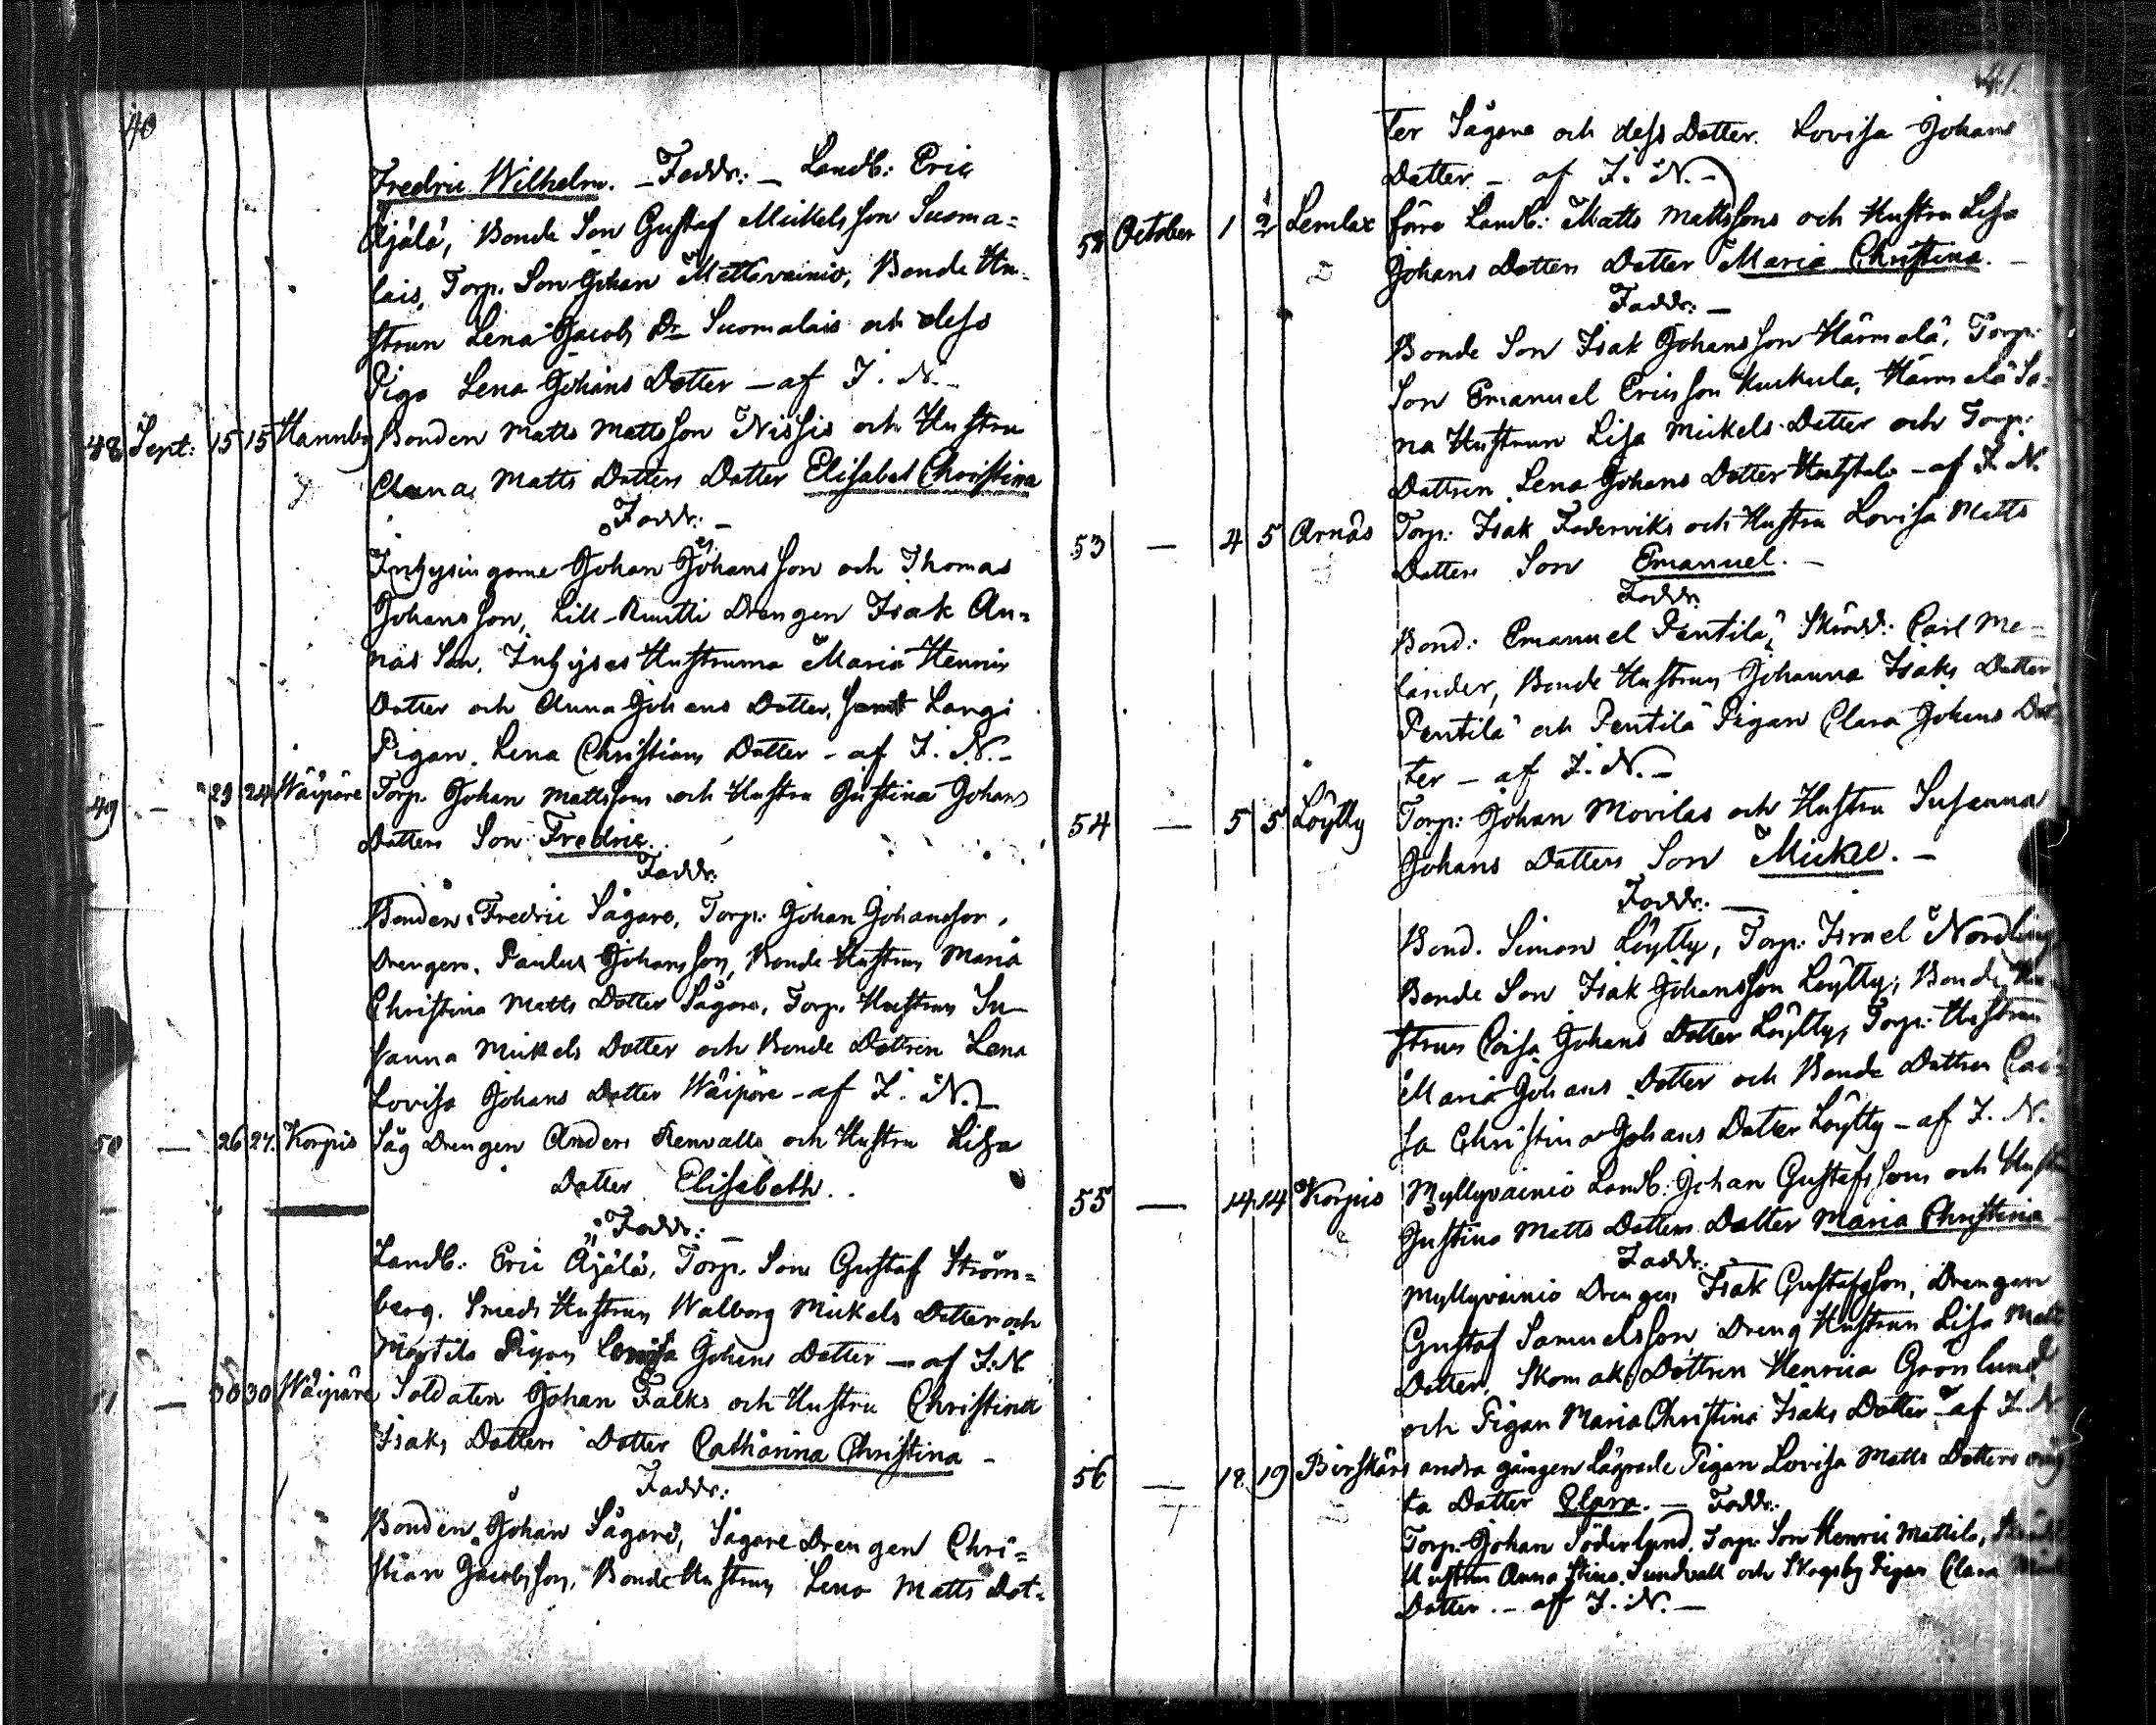 40
Fredric Wilhelm. - Faddr: - Landb: Eric
Äjälä, Bonde Son Gustaf Mickelsson Suoma=
lais, Torp. Son Johan Mettävainio, Bonde Hu-
strun Lena Jacobs Dr Suomalais och dess
Piga Lena Johans Dotter - af I. N. -
48 Sept: 15 15 Hannby Bonden Matts Mattsson Nissis och Hustru
Anna Matts Dotters Dotter Elisabet Christina
Faddr: -
Inhysingarne Johan Johansson och Thomas
Johansson, Lill-Knutti Drengen Isak An=
nas Son, Inhyses Hustrurna Maria Henrics
Dotter och Anna Johans Dotter, samt Langi
Pigan Lena Christians Dotter - af I. N. -
49 - 23 24 Wäipäre Torp. Johan Mattssons och Hustru Gustina Johans
Dotters Son Fredric.
Faddr:
Bonden Fredric Sågare, Torp: Johan Johansson,
Drengen Paulus Johansson, Bonde Hustrun Maria
Christina Matts Dotter Sågare, Torp. Hustrun Su-
sanna Mickels Dotter och Bonde Dottren Lena
Lovisa Johans Dotter Wäipäre - af I. N. -
50 - 26 27. Korpis Såg Drengen Anders Renvalls och Hustru Lisa
Dotter Elisabeth.
Faddr: -
Landb: Eric Äjälä, Torp. Son Gustaf Ström=
berg. Smeds Hustrun Walborg Mickels Dotter och
Mattila Pigan Lovisa Johans Dotter - af I. N.
51 - 30 30 Wäipäre Soldaten Johan Falks och Hustru Christina
Isaks Dotters Dotter Catharina Christina -
Faddr:
Bonden Johan Sågare, Sågare Drengen Chri=
stian Jacobsson, Bonde Hustrun Lena Matts Dot=
41.
ter Sågare och dess Dotter Lovisa Johans
Dotter - af I. N. -
52 October 1 2 Lemlax förre Landb: Matts Mattssons och Hustru Lisa
Johans Dotters Dotter Maria Christina. -
Faddr: -
Bonde Son Isak Johansson Härmälä, Torp:
Son Emanuel Ericsson Kuckula, Härmälä So=
na Hustrun Lisa Mickels Dotter och Torp:
Dottren Lena Johans Dotter - af I. N.
53 - 4 5 Arnäs Torp: Isak Föderviks och Hustru Lovisa Matts
Dotters Son Emanuel. -
Faddr:
Bond: Emanuel Pentilä, Skrädd: Carl Me=
lander, Bonde Hustrun Johanna Isaks Dotter
Pentilä och Pentilä Pigan Clara Johans Dot
ter - af I. N. -
54 - 5 5 Löytty Torp: Johan Movilas och Hustru Susanna
Johans Dotters Son Mickel. -
Faddr: -
Bond. Simon Löytty, Torp: Israel Nordling
Bonde Son Isak Johansson Löytty, Bonde Hu-
strun Caisa Johans Dotter Löytty, Torp: Hustrun
Maria Johans Dotter och Bonde Dottren Cai=
sa Christina Johans Dotter Löytty - af I. N.
55 - 14 14 Korpis Myllyvainio Landb: Johan Gustafssons och Hustru
Gustina Matts Dotters Dotter Maria Christina
Faddr: -
Myllyvainio Drengen Isak Gustafsson, Drengen
Gustaf Samuelsson, Dreng Hustrun Lisa Matts
Dotter, Skomak: Dottren Henrica Grönlund
och Pigan Maria Christina Isaks Dotter - af I. N
56 - 18 19 Birskärs andra gången Lägrade Pigan Lovisa Matts Dotters oäg
ta Dotter Clara. - Faddr:
Torp: Johan Söderlund, Torp: Son Henric Mattila,
Hustrun Anna Stina Sundvall och Skogsby Pigan Clara
Dotter. - af I. N. -